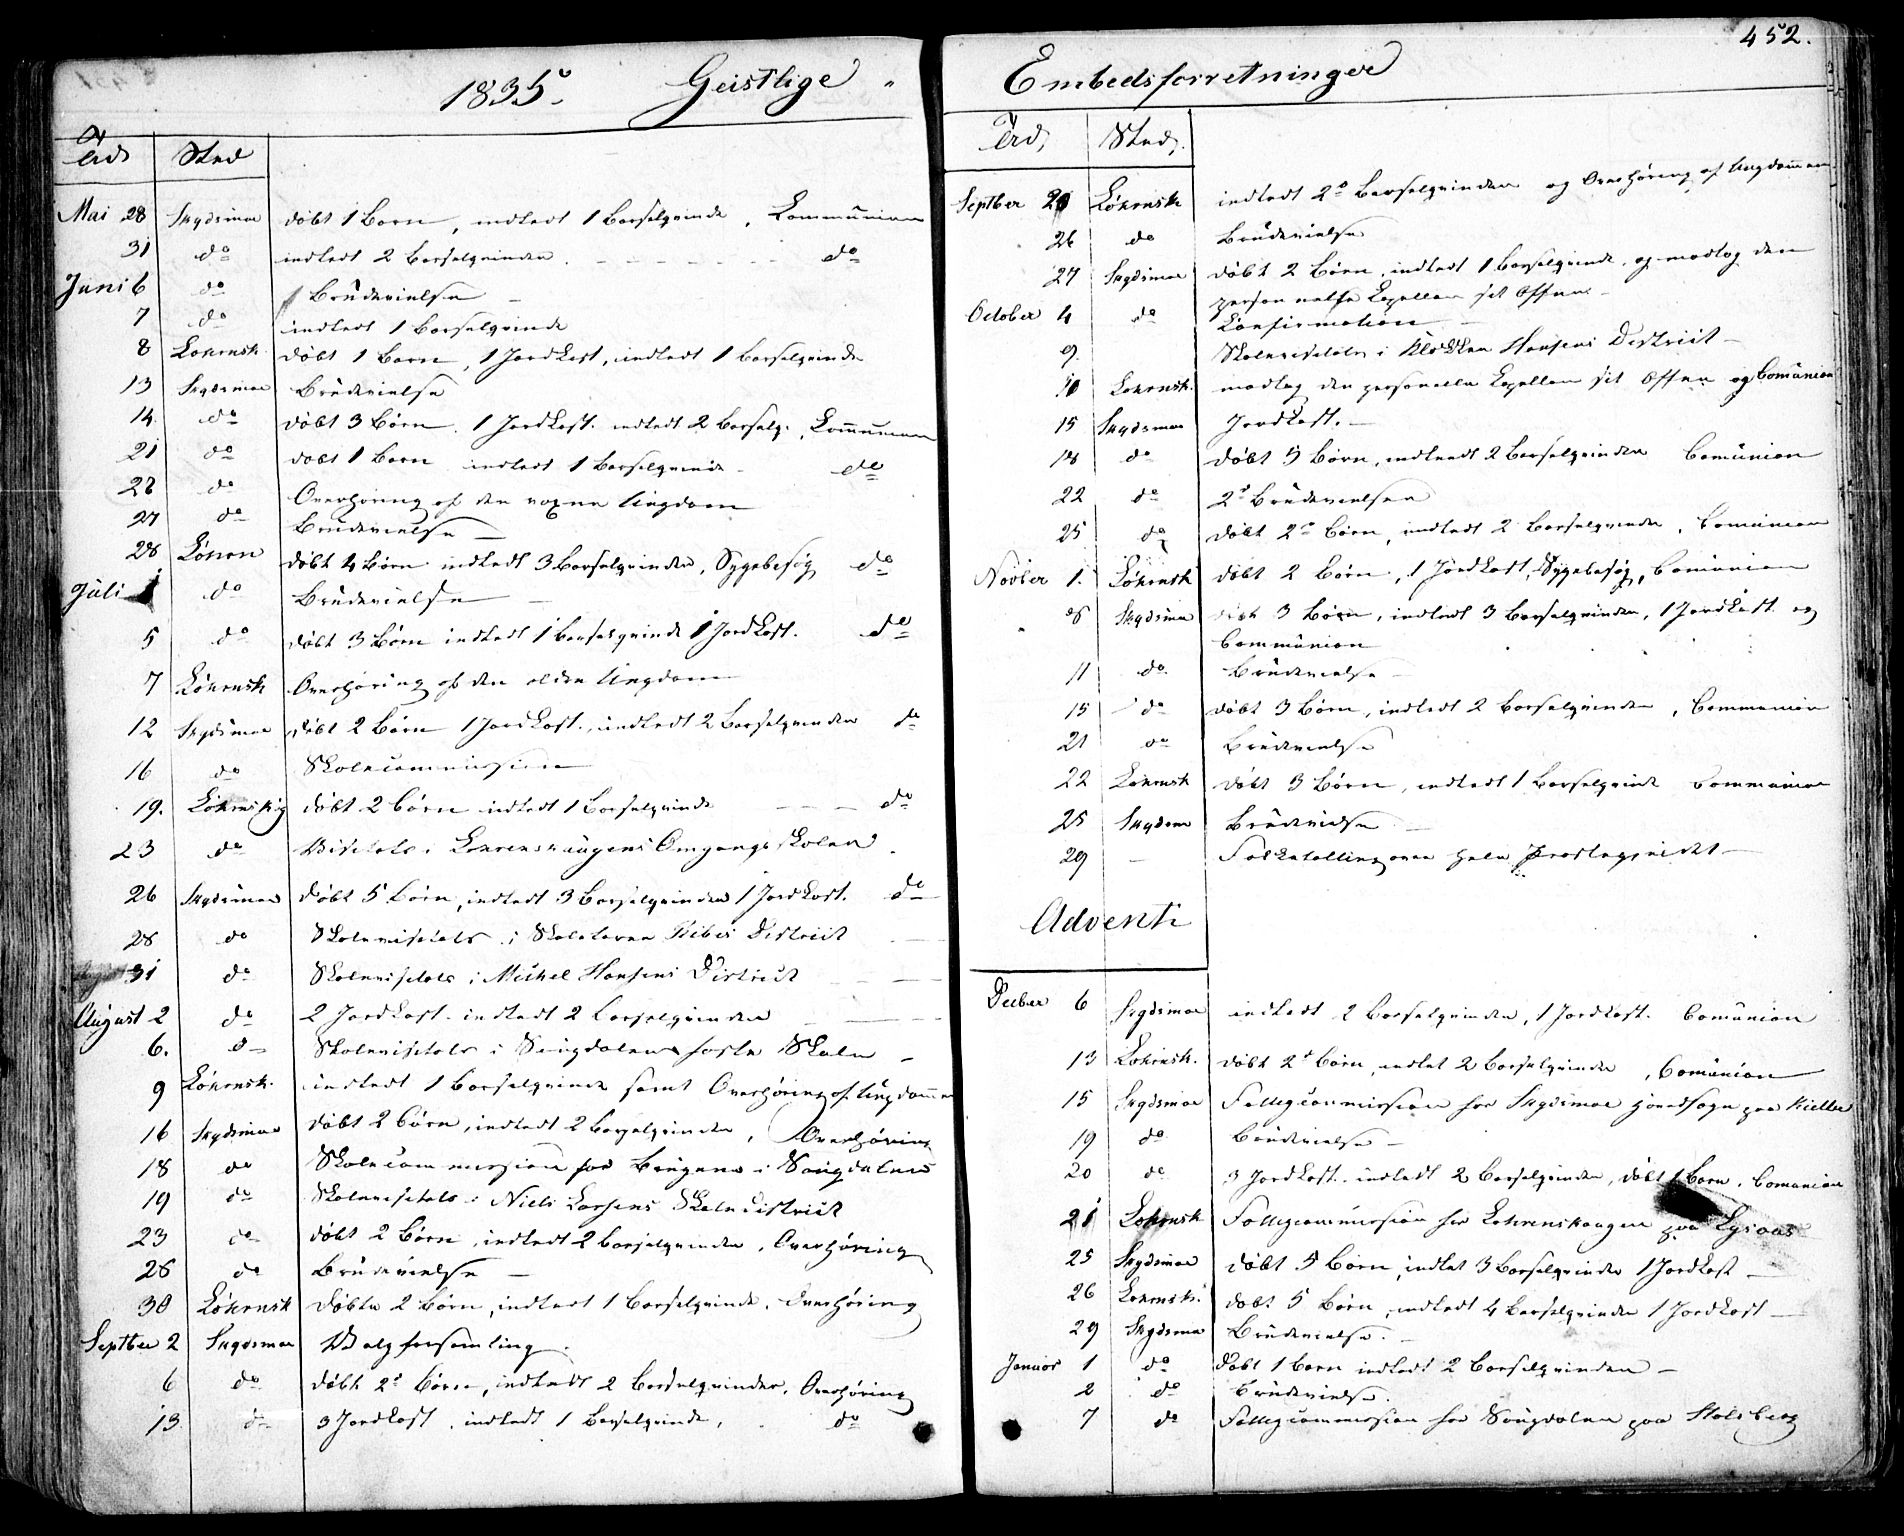 452.
1835. Geistlige Embedsforretninger
Tid Sted
Mai 28 Skydsmoe døbt 1 Barn, indledt 1 Barselqvinde, Communion
31 do indledt 2 Barselqvinder do
Juni 6 do 1 Brudevielse
7 do indledt 1 Barselqvinde
8 Løkensk døbt 1 Barn, 1 Jordkast, indledt 1 Barselqvinde
13 Skydsmoe Brudevielse
14 do døbt 3 Børn, 1 Jordkast, indledt 2 Barselq., Communion
21 do døbt 1 Barn indledt 1 Barselqvinde do
do Overhøring af den voxne Ungdom
27 do Brudevielse
28 døbt 4 Børn indledt 3 Barselqvinder, Sygebesøg do
Juli 1 do Brudevielse
5 do døbt 3 Børn indledt 1 Barselqvinde 1 Jordkast. do
7 Løkensk Overhøring af den Ungdom
12 Skydsmoe døbt 2 Børn 1 Jordkast., indledt 2 Barselqvinder do
16 do Skolecommission
19. døbt 2 Børn indledt 1 Barselqvinde do
23 do Omgangsskoler
26 Skydsmoe døbt 5 Børn, indledt 3 Barselqvinder 1 Jordkast. do
28 do Skolevisitats i District
31 do Skolevisitats i Mickel Hansens District
August 2 do 2 Jordkast. indledt 2 Barselqvinder
6. do Skolevisitats i faste Skole
9 Løkensk. indledt 1 Barselqvinde samt Overhøring af Ungdommen
16 Skydsmoe døbt 2 Børn, indledt 2 Barselqvinder, Overhøring
18 do Skolecommission
19 do Skolevisitats i Niels Larsens Skoledistrict
23 do døbt 2 Børn, indledt 2 Barselqvinder, Overhøring
28 do Brudevielse
30 Løkensk Døbte 2 Børn, indledt 1 Barselqvinde, Overhøring
Septber 2 Skydsmoe Valgforsamling
6 do døbt 2 Børn, indledt 2 Barselqvinder, Overhøring
13. do 3 Jordkast, indledt 1 Barselqvinde, do
Tid Sted
Septber 20 Løkensk indledt 2 Barselqvinder og Overhøring af Ungdommen
26 do Brudevielse
27 Skydsmoe døbt 2 Børn, indledt 1 Barselqvinde, og modtog den
personelle Capellan sit Offer
October 4 do Confirmation
9. Skolevisitats i Klokker Hansens District
Løkensk. modtog den personelle Capellan sit Offer og Comunion
15 Skydsmoe Jordkast.
18 do døbt 5 Børn, indledt 2 Barselqvinder Comunion
22 do 2 Brudevielser
25 do døbt 2 Børn, indledt 2 Barselqvinder, Comunion
Novber 1. Løkensk døbt 2 Børn, 1 Jordkast, Sygebesøg, Comunion
8 Skydsmoe døbt 3 Børn, indledt 3 Barselqvinder, 1 Jordkast og
Communion
11 do Brudevielse
15 do døbt 3 Børn, indledt 2 Barselqvinder, Communion
21 do Brudevielse
22 Løkensk døbt 3 Børn, indledt 1 Barselqvinde Communion
25 Skydsm Brudevielse
29 - Folketælling over hele Præstegieldet
Adventi
Decber 6 Skydsmoe indledt 2 Barselqvinder, 1 Jordkast. Comunion
13 Løkensk. døbt 2 Børn, indlet 2 Barselqvinder, Comunion
15 Skydsmoe Fattigcommission for Skydsmoe Hovedsogn paa
19 do Brudevielse
20 do 3 Jordkast. indledt 2 Barselqvinder, døbt 1 Barn. Comunion
21 Løkensk Fattigcommission for paa
25 Skydsmoe døbt 5 Børn, indlet 3 Barselqvinder 1 Jordkast
26 Løkensk. døbt 5 Børn, indledt 4 Barselqvinder 1 Jordkast
29 Skydsmoe Brudevielse.
Januar 1 do døbt 1 Barn indledt 2 Barselqvinder
2 do Brudevielse.
7 do Fattigcommission for paa